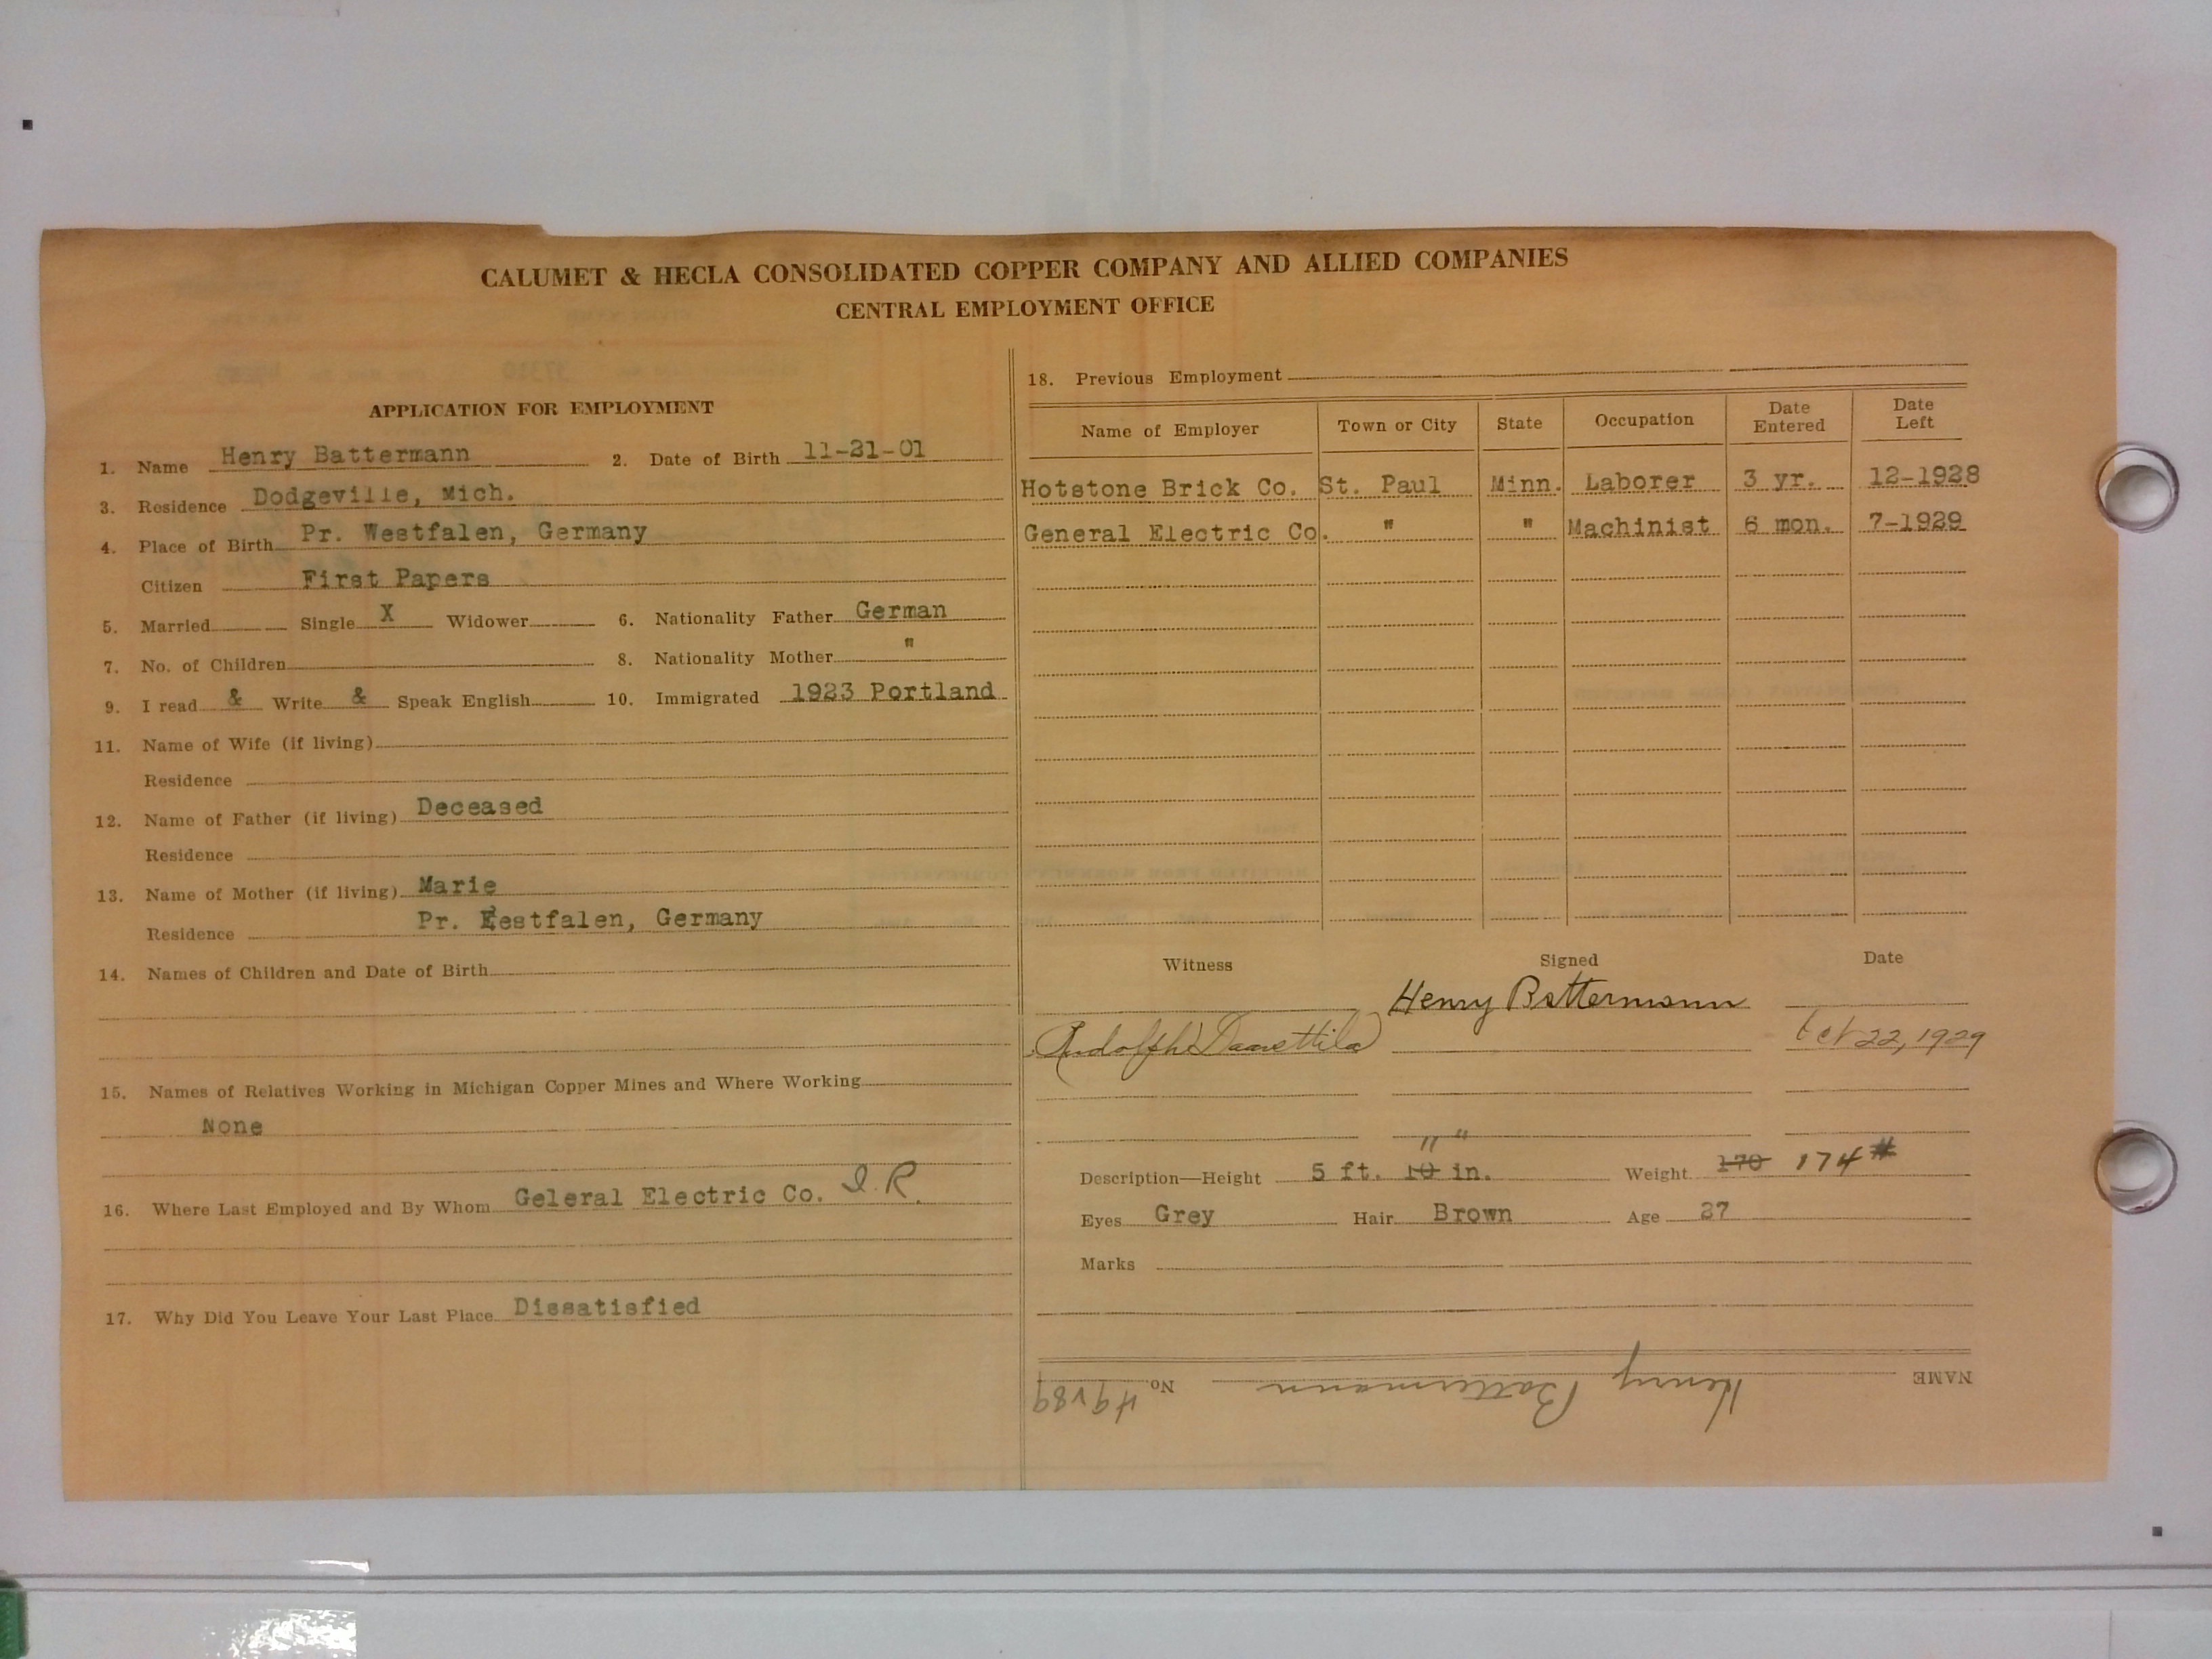 CALUMET & HECLA CONSOLIDATED COPPER COMPANY AND ALLIED COMPANIES
CENTRAL EMPLOYMENT OFFICE
APPLICATION FOR EMPLOYMENT
1. Name Henry Battermann 2. Date of Birth 11-21-01
3. Residence Dodgeville, Mich.
4. Place of Birth Pr. Westfalen, Germany
Citizen First Papers
5. Married Single X Widower 6. Nationality Father German
7. No. of Children 8. Nationality Mother "
9. I read & Write & Speak English 10. Immigrated 1923 Portland
11. Name of Wife (if living)
Residence
12. Name of Father (if living) Deceased
Residence
13. Name of Mother (if living) Marie
Residence Pr. Eestfalen, Germany
14. Names of Children and Date of Birth
15. Names of Relatives Working in Michigan Copper Mines and Where Working
None
16. Where Last Employed and By Whom Geleral Electric Co. I.R.
17. Why Did You Leave Your Last Place Dissatisfied
18. Previous Employment
Name of Employer Town or City State Occupation Date Entered Date Left
Hotstone Brick Co. St. Paul Minn. Laborer 3 yr. 12-1928
General Electric Co. " " Machinist 6 mon. 7-1929
Witness Signed Date
Henry Battermann
Rudolph Oct 22, 1929
" "
Description—Height 5 ft. 10 in. Weight 170 174#
Eyes Grey Hair Brown Age 27
Marks
NAME Henry Battermann No.